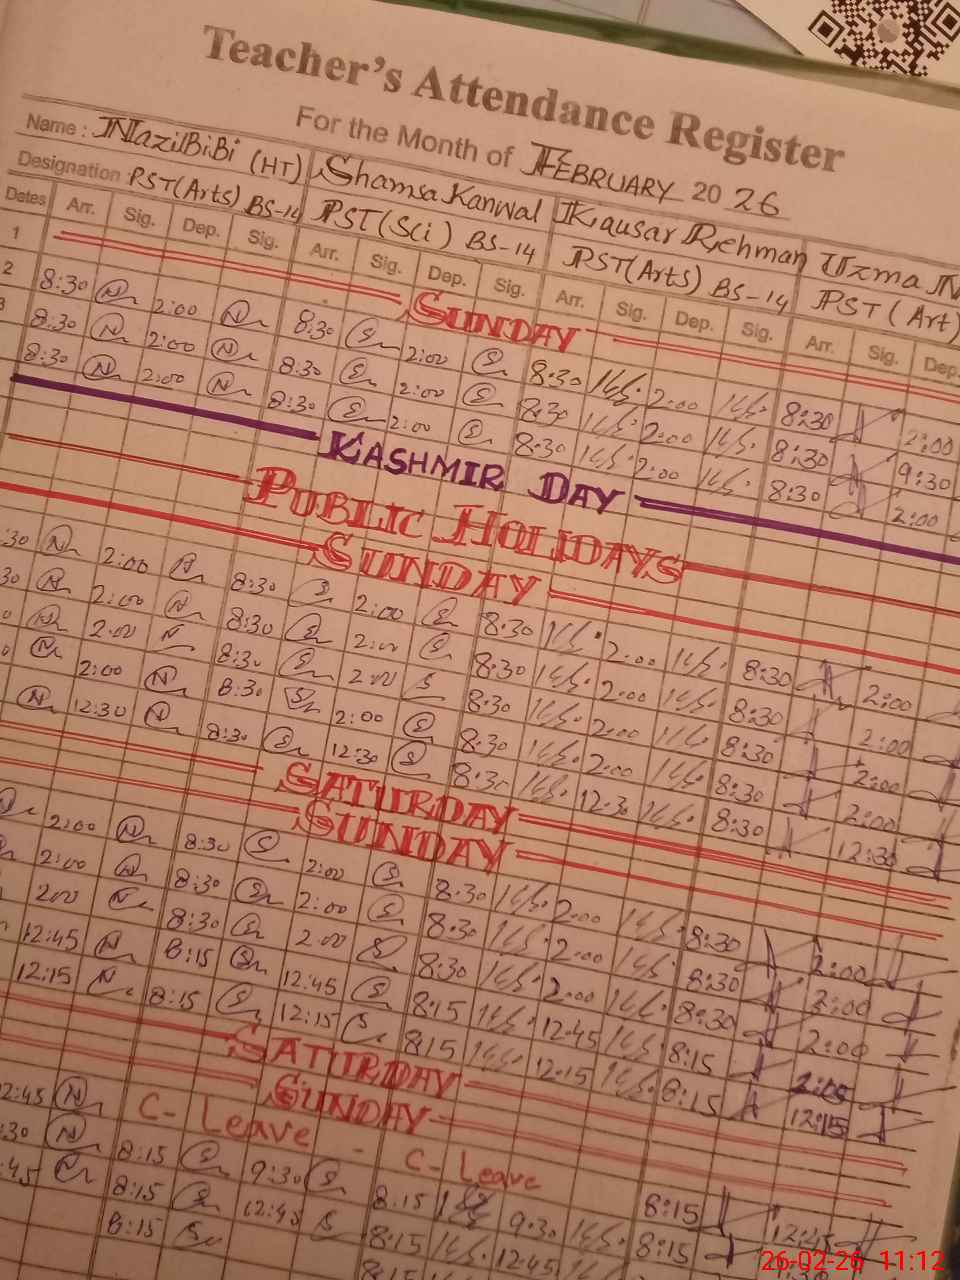 Teacher's Attendance Register
For the Month of FEBRUARY 2026
Name : NaziBiBi (HT) Shamsa Kanwal Kausar Rehman Uzma N
Designation PST(Arts) BS-14 PST(Sci) BS-14 PST(Arts) BS-14 PST(Art)
Dates Arr. Sig. Dep. Sig. Arr. Sig. Dep. Sig. Arr. Sig. Dep. Sig. Arr. Sig. Dep.
1 SUNDAY
2 8:30 2:00 8:30 2:00 8:30 2:00 8:30 2:00
3 8:30 2:00 8:30 2:00 8:30 2:00 8:30 9:30
8:30 2:00 8:30 2:00 8:30 2:00 8:30 2:00
KASHMIR DAY
PUBLIC HOLIDAYS
SUNDAY
:30 2:00 8:30 2:00 8:30 2:00 8:30 2:00
30 2:00 8:30 2:00 8:30 2:00 8:30 2:00
0 2:00 8:30 2:00 8:30 2:00 8:30 2:00
0 2:00 8:30 2:00 8:30 2:00 8:30 2:00
12:30 8:30 12:30 8:30 12:30 8:30 12:30
SATURDAY
SUNDAY
2:00 8:30 2:00 8:30 2:00 8:30 2:00
2:00 8:30 2:00 8:30 2:00 8:30 2:00
2:00 8:30 2:00 8:30 2:00 8:30 2:00
12:45 8:15 12:45 8:15 12:45 8:15
12:15 8:15 12:15 8:15 12:15 8:15 12:15
SATURDAY
SUNDAY
2:45 C- Leave - C- Leave 8:15 12:45
:30 8:15 9:30 8:15 9:30 8:15
:45 8:15 12:45 8:15 12:45
8:15 8:15
26-02-26 11:12